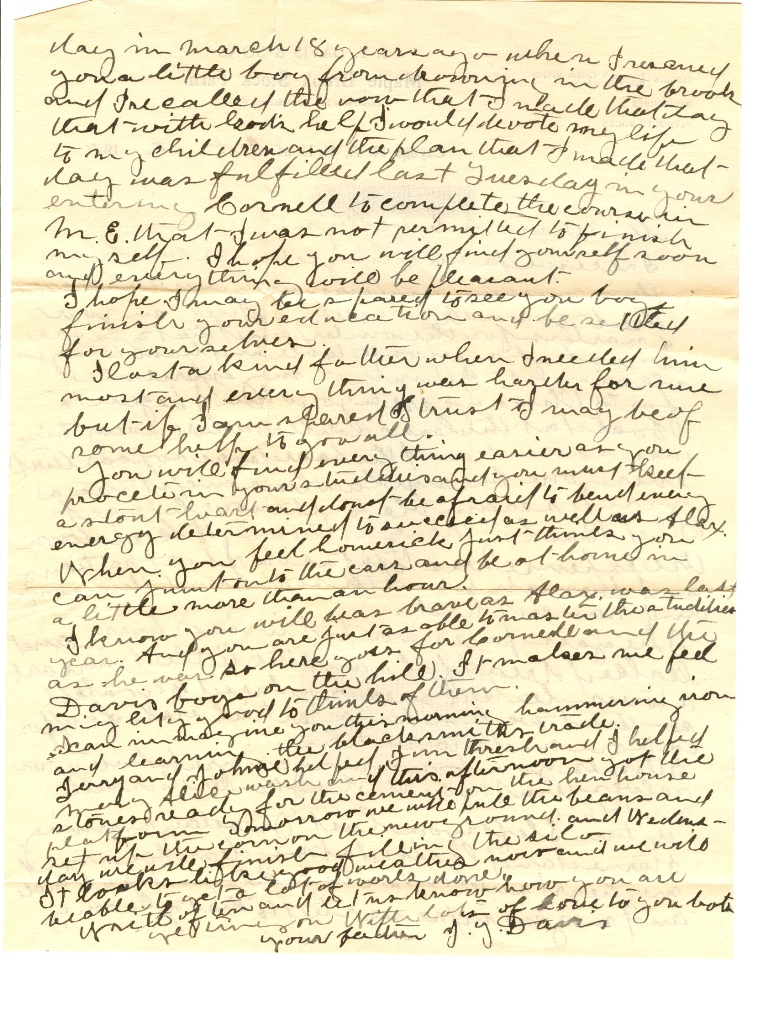 day in march 18 years ago when I rescued
you a little boy from drowning in the brook
and I recalled the vow that I made that day
that with God's help I would devote my life
to my children and the plan that I made that
day was fulfilled last Tuesday in your
entering Cornell to complete the course in
M. E. that I was not permitted to finish
my self. I hope you will find yourself soon
and everything will be pleasant.
I hope I may be spared to see you boys
finish your education and be settled
for yourselves.
I lost a kind father when I needed him
most and every thing was harder for me
but if I am spared I trust I may be of
some help to you all.
You will find every thing easier as you
procete in your studies and you must keep
a stout heart and dont be afraid to bend every
energy determined to succeed as well as Alax.
When you feel homesick just think you
can jump onto the cars and be at home in
a little more than an hour.
I know you will be as brave as Alax. was last
year. And you are just as able to master the studies
as he was so here goes for Cornell and the
Davis boys on the hill. It makes me feel
mighty good to think of them.
I can immagine you this morning hammering iron
and learning the blacksmiths trade.
Jerry and John helped Jim thresh and I helped
Mary Alice wash and this afternoon got the
stones ready for the cement on the hen house
platform Tomorrow we will pull the beans and
set up the corn on the new ground. and Wednes-
day we will finish filling the silo
It looks like good weather now and we will
be able to get a lot of work done.
Write often and let us know how you are
getting on With lots of love to you both
your father J. J. Davis